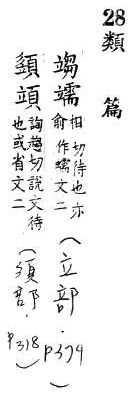 28 類篇
相俞切待也亦作文二（立部．P374）
詢趨切說文待也或省文二（須部．P318）